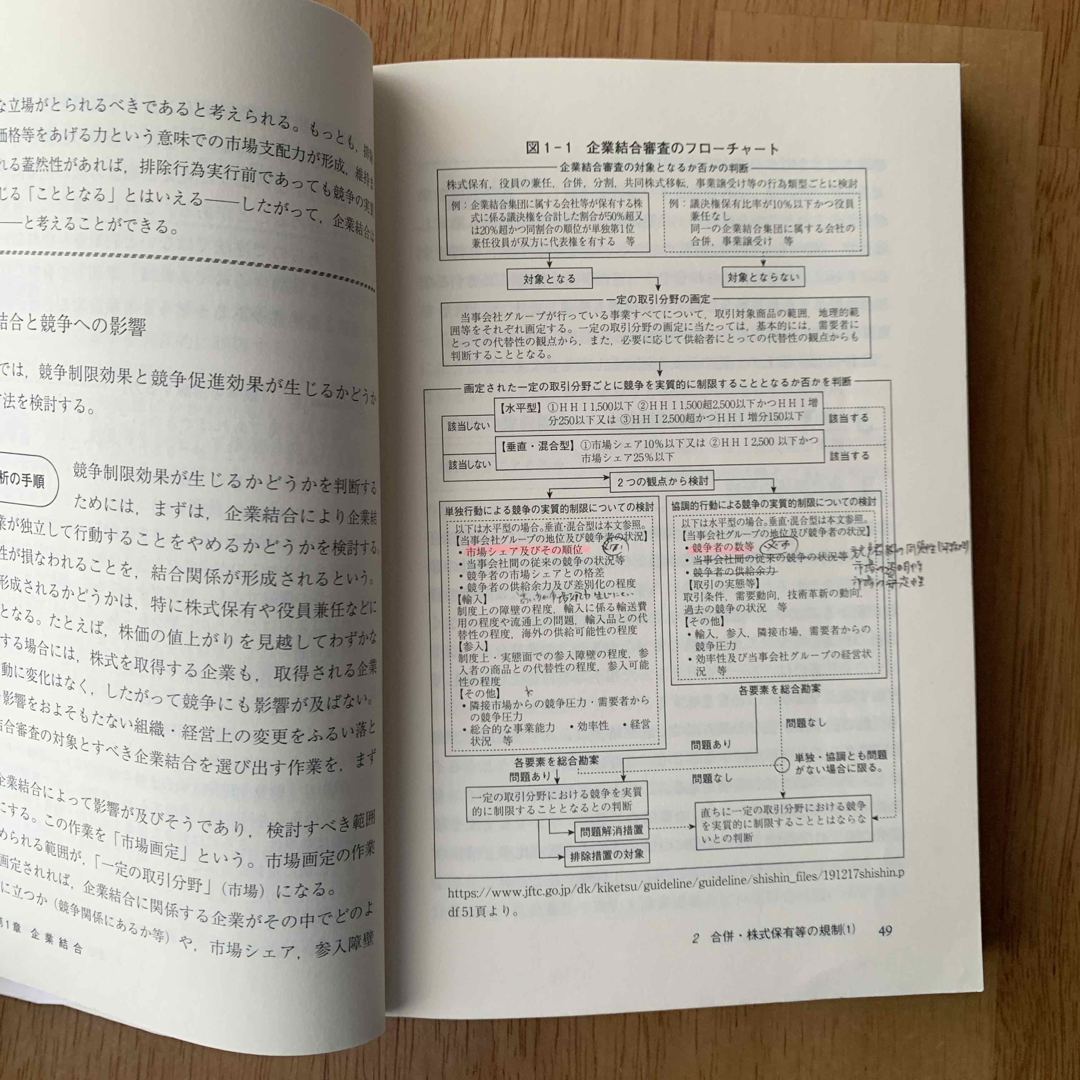 な立場がとられるべきであると考えられる。もっとも，
価格等をあげる力という意味での市場支配力が形成，維持
れる蓋然性があれば，排除行為実行前であっても競争の実
じる「こととなる」とはいえる――したがって，企業結合
――と考えることができる。
結合と競争への影響
では，競争制限効果と競争促進効果が生じるかどうか
方法を検討する。
析の手順
競争制限効果が生じるかどうかを判断する
ためには，まずは，企業結合により企業結
業が独立して行動することをやめるかどうかを検討する。
性が損なわれることを，結合関係が形成されるという。
形成されるかどうかは，特に株式保有や役員兼任などに
となる。たとえば，株価の値上がりを見越してわずかな
する場合には，株式を取得する企業も，取得される企業
動に変化はなく，したがって競争にも影響が及ばない。
影響をおよそもたない組織・経営上の変更をふるい落と
結合審査の対象とすべき企業結合を選び出す作業を，まず
企業結合によって影響が及びそうであり，検討すべき範囲
にする。この作業を「市場画定」という。市場画定の作業
められる範囲が，「一定の取引分野」（市場）になる。
画定されれば，企業結合に関係する企業がその中でどのよ
に立つか（競争関係にあるか等）や，市場シェア，参入障壁
第1章 企業結合
図1-1 企業結合審査のフローチャート
企業結合審査の対象となるか否かの判断
株式保有，役員の兼任，合併，分割，共同株式移転，事業譲受け等の行為類型ごとに検討
例：企業結合集団に属する会社等が保有する株
式に係る議決権を合計した割合が50％超又
は20％超かつ同割合の順位が単独第1位
兼任役員が双方に代表権を有する 等
例：議決権保有比率が10％以下かつ役員
兼任なし
同一の企業結合集団に属する会社の
合併，事業譲受け 等
対象となる
対象とならない
一定の取引分野の画定
当事会社グループが行っている事業すべてについて，取引対象商品の範囲，地理的範
囲等をそれぞれ画定する。一定の取引分野の画定に当たっては，基本的には，需要者に
とっての代替性の観点から，また，必要に応じて供給者にとっての代替性の観点からも
判断することとなる。
画定された一定の取引分野ごとに競争を実質的に制限することとなるか否かを判断
【水平型】①ＨＨＩ1,500以下 ②ＨＨＩ1,500超2,500以下かつＨＨＩ増
分250以下又は ③ＨＨＩ2,500超かつＨＨＩ増分150以下
該当しない
該当する
【垂直・混合型】①市場シェア10％以下又は ②ＨＨＩ2,500 以下かつ
市場シェア25％以下
該当しない
該当する
2つの観点から検討
単独行動による競争の実質的制限についての検討
以下は水平型の場合。垂直・混合型は本文参照。
【当事会社グループの地位及び競争者の状況】
・市場シェア及びその順位
・当事会社間の従来の競争の状況等
・競争者の市場シェアとの格差
・競争者の供給余力及び差別化の程度
【輸入】
制度上の障壁の程度，輸入に係る輸送費
用の程度や流通上の問題，輸入品との代
替性の程度，海外の供給可能性の程度
【参入】
制度上・実態面での参入障壁の程度，参
入者の商品との代替性の程度，参入可能
性の程度
【その他】
・隣接市場からの競争圧力・需要者から
の競争圧力
・総合的な事業能力 ・効率性 ・経営
状況 等
協調的行動による競争の実質的制限についての検討
以下は水平型の場合。垂直・混合型は本文参照。
【当事会社グループの地位及び競争者の状況】
・競争者の数等
・当事会社間の従来の競争の状況等
・競争者の供給余力
【取引の実態等】
取引条件，需要動向，技術革新の動向，
過去の競争の状況 等
【その他】
・輸入，参入，隣接市場，需要者からの
競争圧力
・効率性及び当事会社グループの経営状
況 等
各要素を総合勘案
問題なし
問題あり
各要素を総合勘案
問題あり
問題なし
単独・協調とも問題
がない場合に限る。
一定の取引分野における競争を実質
的に制限することとなるとの判断
直ちに一定の取引分野における競争
を実質的に制限することとはならな
いとの判断
問題解消措置
排除措置の対象
https://www.jftc.go.jp/dk/kiketsu/guideline/guideline/shishin_files/191217shishin.p
df 51頁より。
2 合併・株式保有等の規制(1) 49